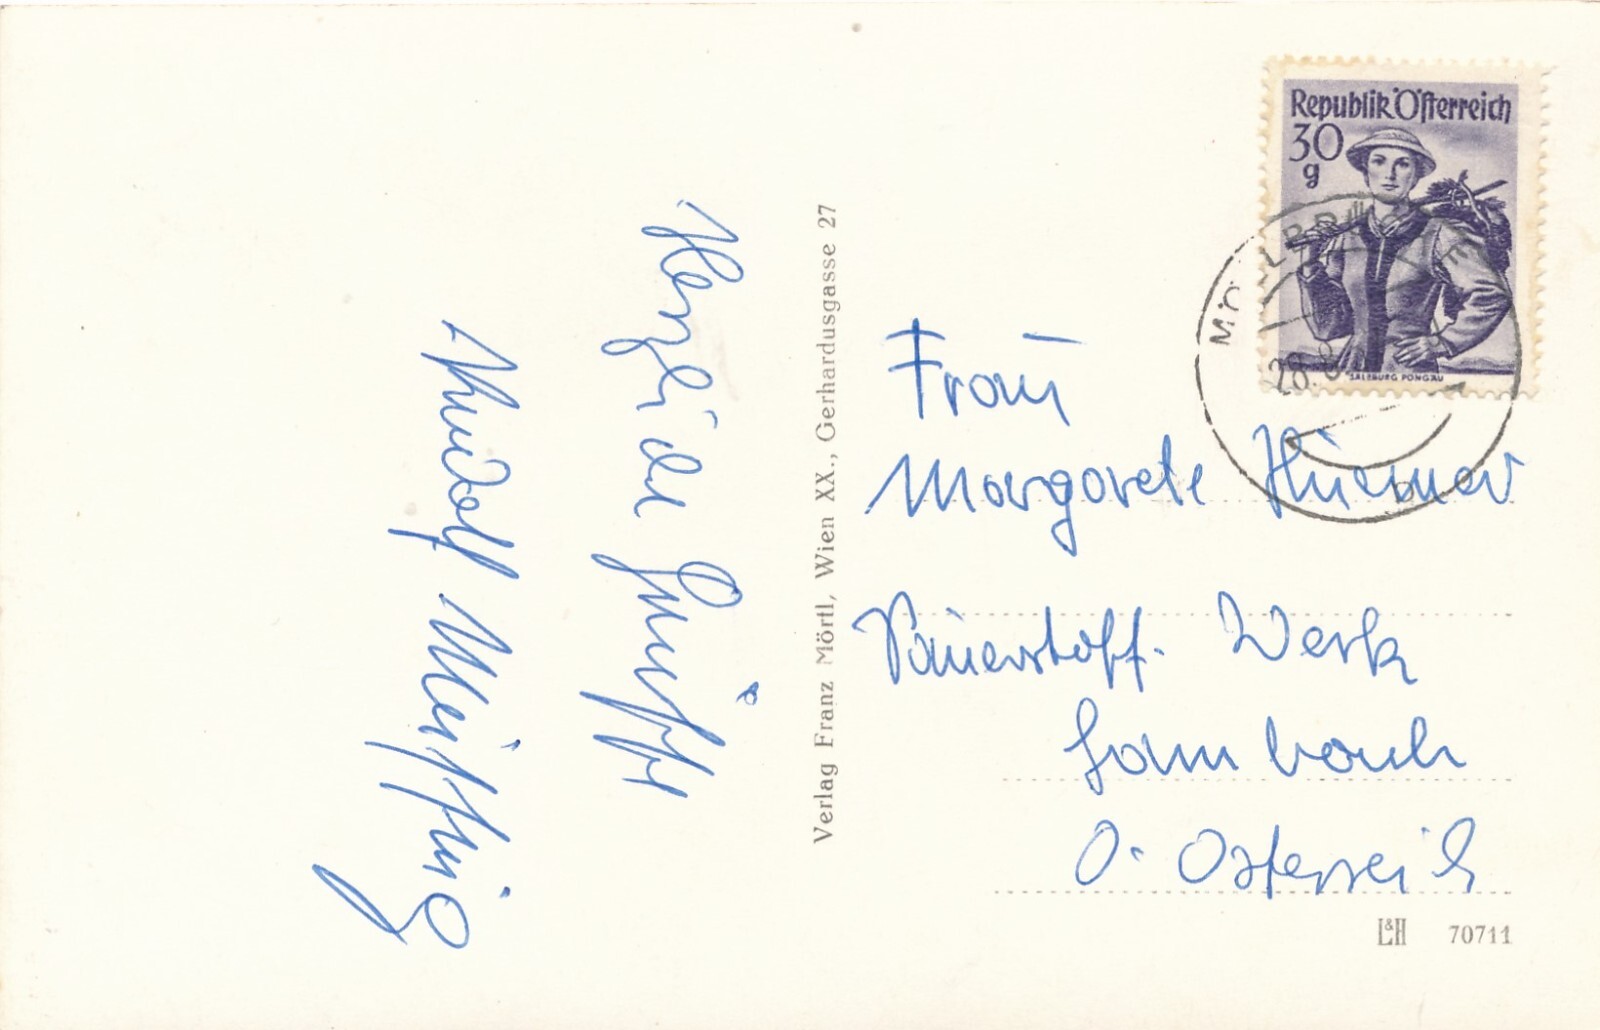 Herzliche Grüße
Rudolf
Verlag Franz Mörtl, Wien XX., Gerhardusgasse 27
Republik Österreich
30
g
SALZBURG PONGAU
MÖLLBRÜCKE
28.8.
b
Frau
Margarete Huemer
Sauerstoff-Werk
Lambach
O. Österreich
L&H 70711